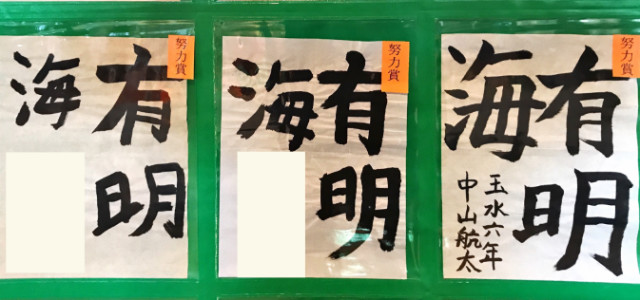 努力賞
有明
海
努力賞
有明
海
努力賞
有明
海
玉水六年
中山航太